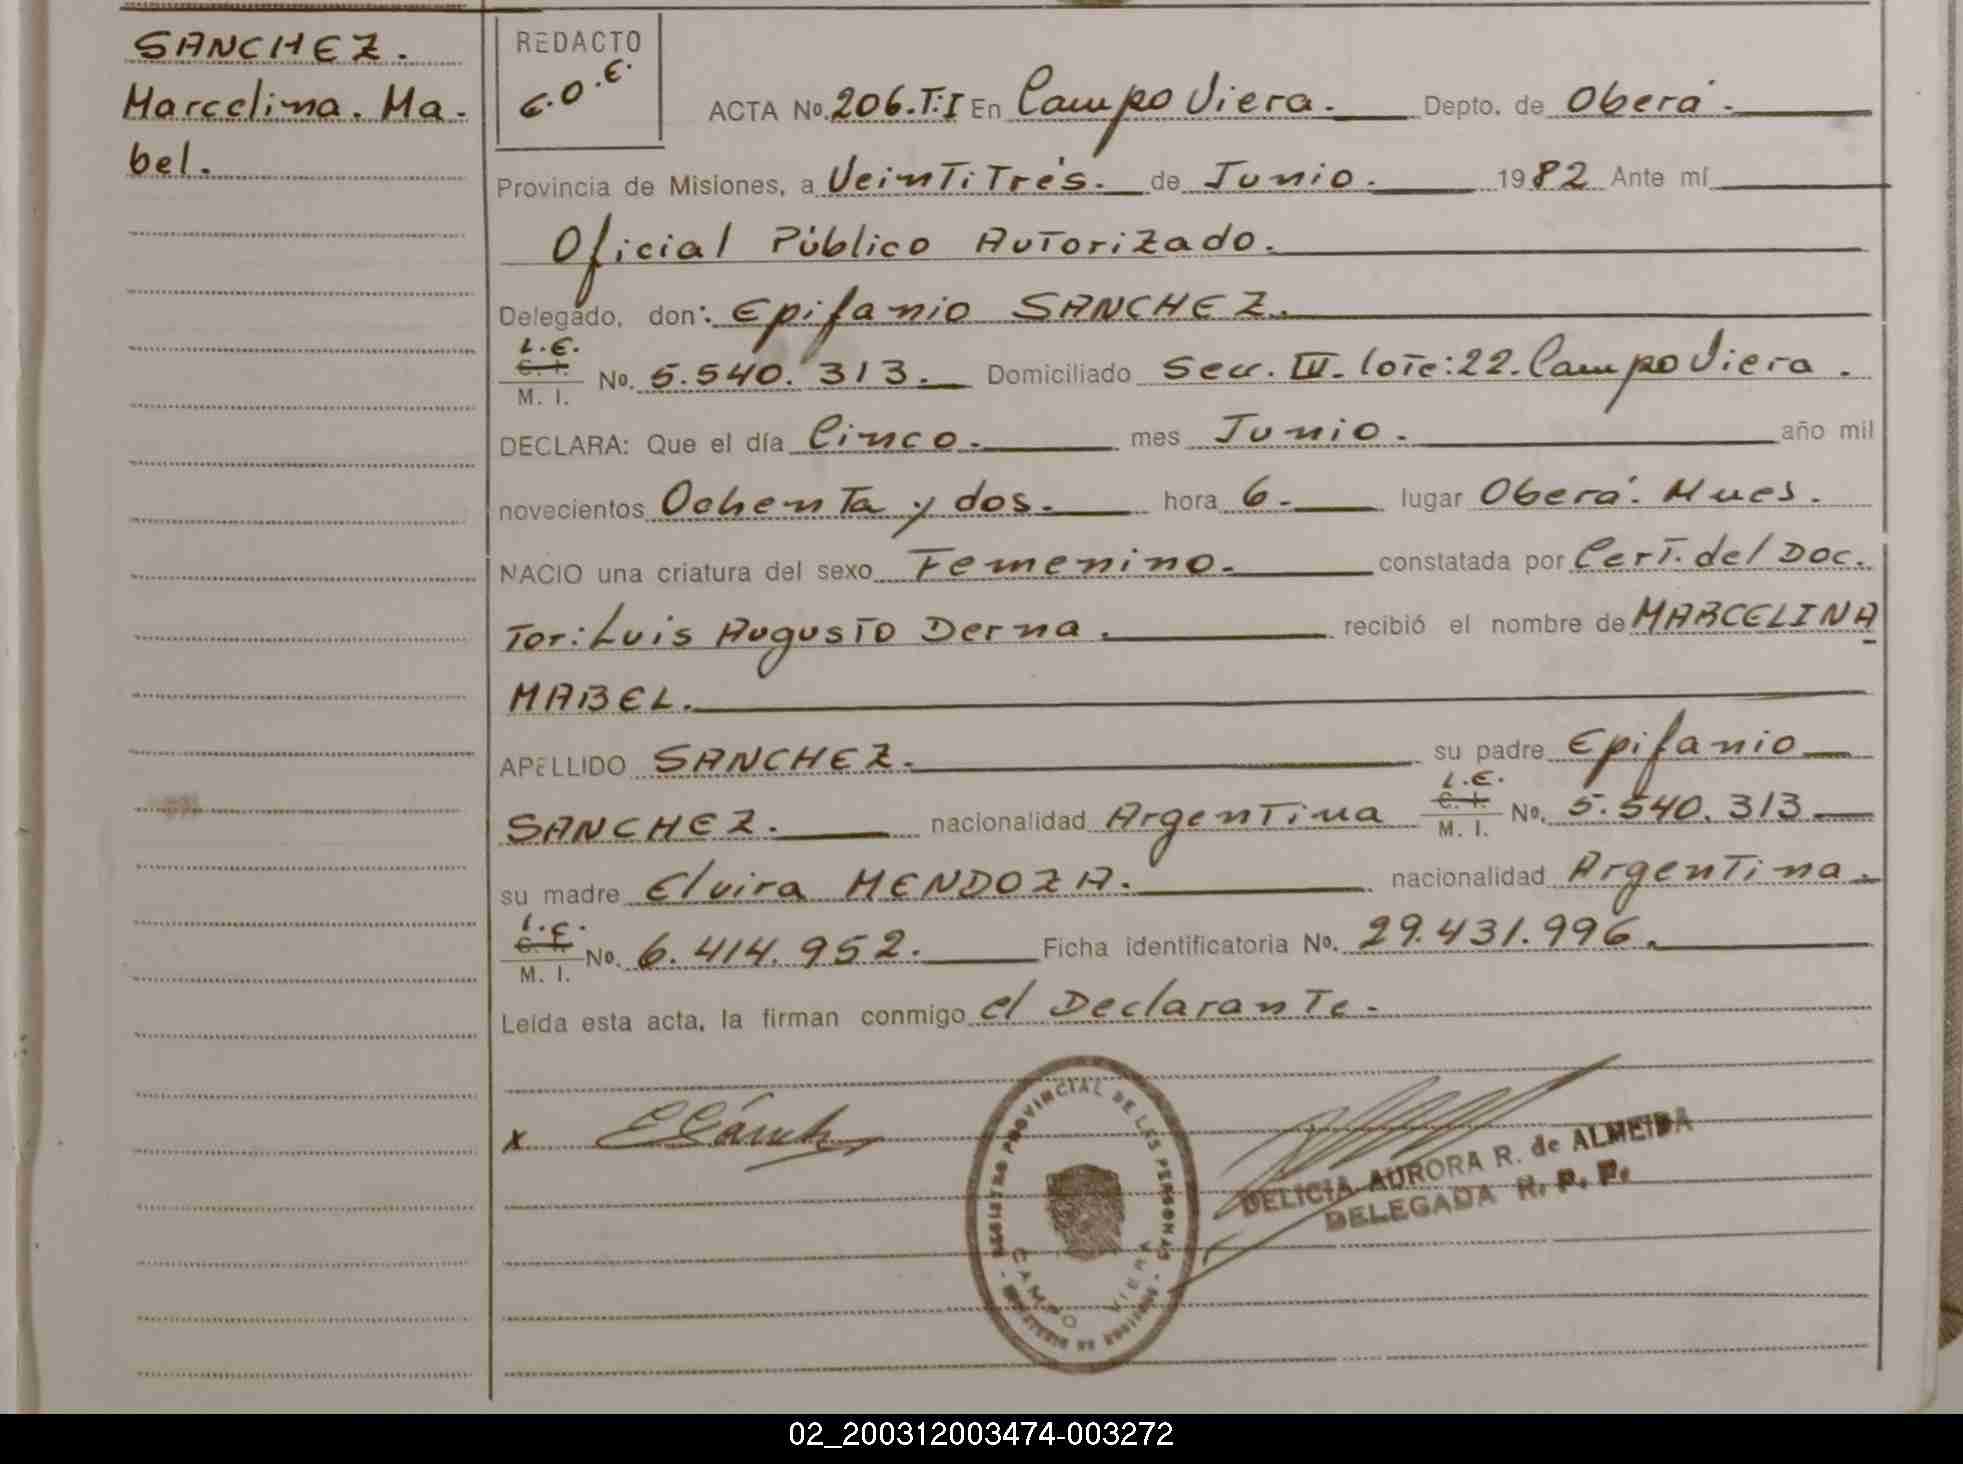 SANCHEZ.
Marcelina. Ma.
bel.
REDACTO
E.O.E.
ACTA No. 206.T:I En Campo Viera. Depto. de Oberá.
Provincia de Misiones, a VeinTiTrés. de Junio. 1982 Ante mí
Oficial Público AuTorizado.
Delegado, don: Epifanio SANCHEZ.
L.E.
C. I.
M. I. No. 5.540.313. Domiciliado Secc. III. loTe:22. Campo Viera.
DECLARA: Que el día Cinco. mes Junio. año mil
novecientos OchenTa y dos. hora 6. lugar Oberá. Mnes.
NACIO una criatura del sexo Femenino. constatada por CerT. del Doc.
Tor: Luis AugusTo Derna. recibió el nombre de MARCELINA
MABEL.
APELLIDO SANCHEZ. su padre Epifanio
SANCHEZ. nacionalidad ArgenTina L.E. C. I. M. I. No. 5.540.313
su madre Elvira MENDOZA. nacionalidad ArgenTina.
L.E.
C. I.
M. I. No. 6.414.952. Ficha identificatoria No. 29.431.996.
Leída esta acta, la firman conmigo el DeclaranTe.
x
REGISTRO PROVINCIAL DE LAS PERSONAS
CAMPO VIERA
MINISTERIO DE GOBIERNO
DELICIA AURORA R. de ALMEIDA
DELEGADA R. P. P.
02_200312003474-003272